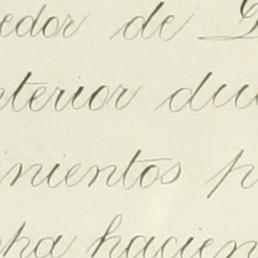 edor de
nterior du
inientos p
ha hacien